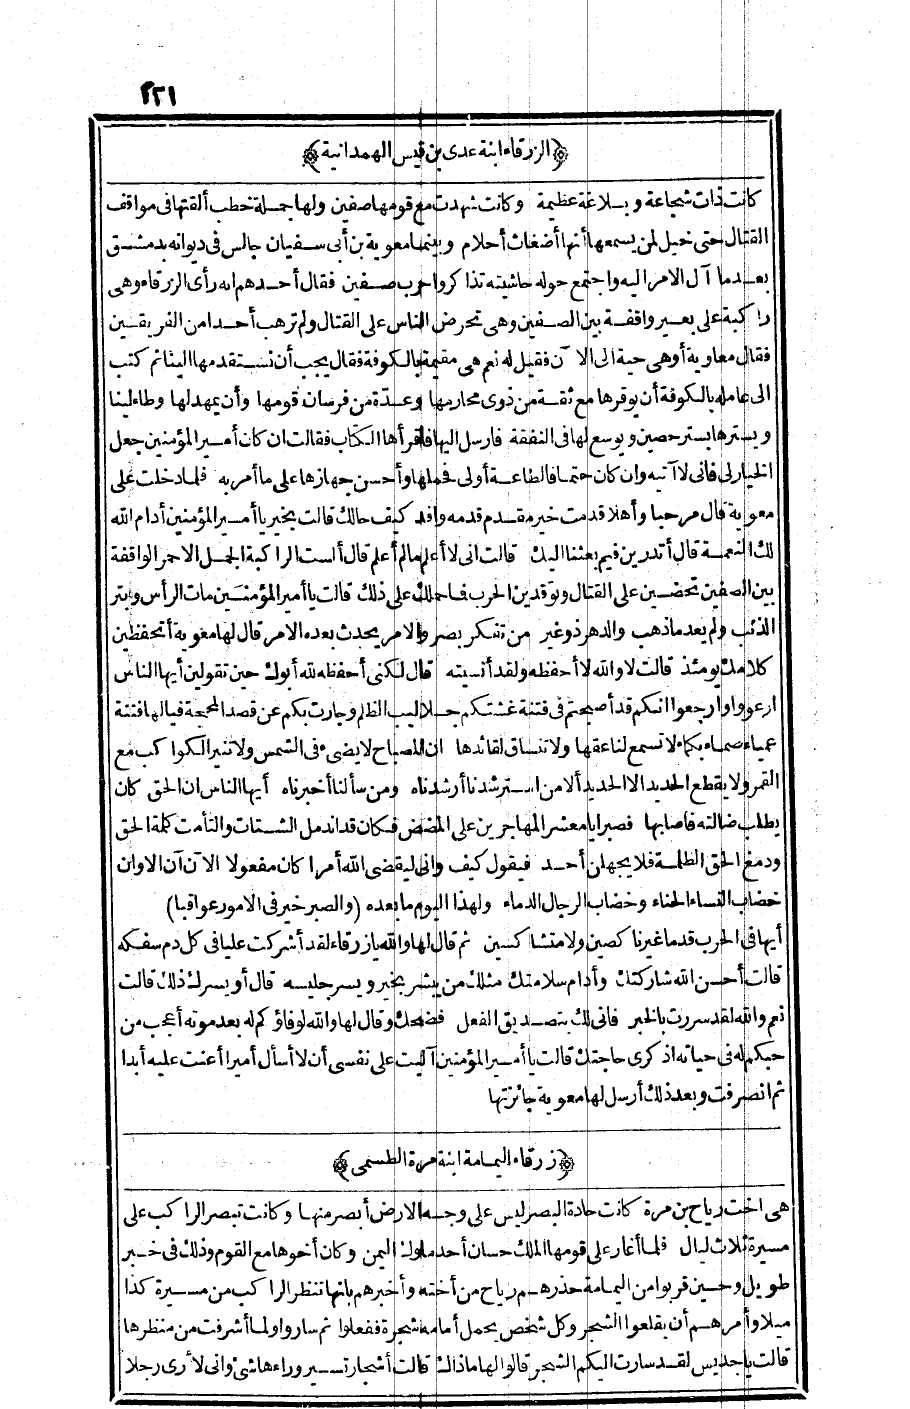 ٢٢١
﴿الزرقاء ابنة عدى بن قيس الهمدانية﴾
كانت ذات شجاعة وبلاغة عظيمة وكانت شهدت مع قومها صفين ولها جملة خطب ألقتها فى مواقف
القتال حتى خيل لمن يسمعها أنها أضغاث أحلام وبينما معوية بن أبى سفيان جالس فى ديوانه بدمشق
بعد ما آل الامر اليه واجتمع حوله حاشيته تذاكروا حرب صفين فقال أحدهم انه رأى الزرقاء وهى
راكبة على بعير واقفة بين الصفين وهى تحرض الناس على القتال ولم ترهب أحدا من الفريقين
فقال معاوية أوهى حية الى الآن فقيل له نعم هى مقيمة بالكوفة فقال يجب أن نستقدمها الينا ثم كتب
الى عامله بالكوفة أن يوفرها مع ثقة من ذوى محارمها وعدّة من فرسان قومها وأن يمهد لها وطاء لينا
ويسترها بستر حصين ويوسع لها فى النفقة فارسل اليها فاقرأها الكتاب فقالت ان كان أمير المؤمنين جعل
الخيار لى فانى لا آتيه وان كان حتما فالطاعة أولى فحملها وأحسن جهازها على ما أمر به فلما دخلت على
معوية قال مرحبا وأهلا قدمت خير مقدم قدمه وافد كيف حالك قالت بخير يا أمير المؤمنين أدام الله
لك النعمة قال أتدرين فيم بعثنا اليك قالت انى لا أعلم ما لم أعلم قال ألست الراكبة الجمل الاحمر الواقفة
بين الصفين تحضين على القتال وتوقدين الحرب فما حملك على ذلك قالت يا أمير المؤمنين مات الرأس وبتر
الذنب ولم يعد ما ذهب والدهر ذو غير من تفكر بصر والامر يحدث بعده الامر قال لها معوية أتحفظين
كلامك يومئذ قالت لا والله لا أحفظه ولقد أنسيته قال لكنى أحفظه لله أبوك حين تقولين أيها الناس
ارعووا وارجعوا انكم قد أصبحتم فى فتنة غشتكم جلابيب الظلم وجارت بكم عن قصد المحجة فيالها فتنة
عمياء صماء بكماء لا تسمع لناعقها ولا تنساق لقائدها ان المصباح لا يضىء فى الشمس ولا تنير الكواكب مع
القمر ولا يقطع الحديد الا الحديد ألا من استرشدنا أرشدناه ومن سألنا أخبرناه أيها الناس ان الحق كان
يطلب ضالته فاصابها فصبرا يا معشر المهاجرين على المضض فكان قد اندمل الشتات والتأمت كلمة الحق
ودمغ الحق الظلمة فلا يجهلن أحد فيقول كيف وانى ليقضى الله أمرا كان مفعولا الا آن الآن الاوان
خضاب النساء الحناء وخضاب الرجال الدماء ولهذا اليوم ما بعده (والصبر خير فى الامور عواقبا)
أيها فى الحرب قدما غير ناكصين ولا متشاكسين ثم قال لها والله يا زرقاء لقد أشركت عليا فى كل دم سفكه
قالت أحسن الله شاركتك وأدام سلامتك مثلك من يبشر بخير ويسر جليسه قال أو يسرك ذلك قالت
نعم والله لقد سررت بالخبر فانى لك بتصديق الفعل فضحك وقال لها والله لوفاؤكم له بعد موته أعجب من
حبكم له فى حياته اذكرى حاجتك قالت يا أمير المؤمنين آليت على نفسى أن لا أسأل أميرا أعنت عليه أبدا
ثم انصرفت وبعد ذلك أرسل لها معوية جائزتها
﴿زرقاء اليمامة ابنة مرة الطسمى﴾
هى اخت رياح بن مرة كانت حادة البصر ليس على وجه الارض أبصر منها وكانت تبصر الراكب على
مسيرة ثلاث ليال فلما أغار على قومها الملك حسان أحد ملوك اليمن وكان أخوها مع القوم وذلك فى خبر
طويل وحين قربوا من اليمامة حذرهم رياح من أخته وأخبرهم بانها تنظر الراكب من مسيرة كذا
ميلا وأمرهم أن يقلعوا الشجر وكل شخص يحمل أمامه شجرة ففعلوا ثم ساروا ولما أشرفت من منظرها
قالت يا جديس لقد سارت اليكم الشجر قالوا لها ما ذاك قالت أشجار تسير وراءها شئ وانى لأرى رجلا